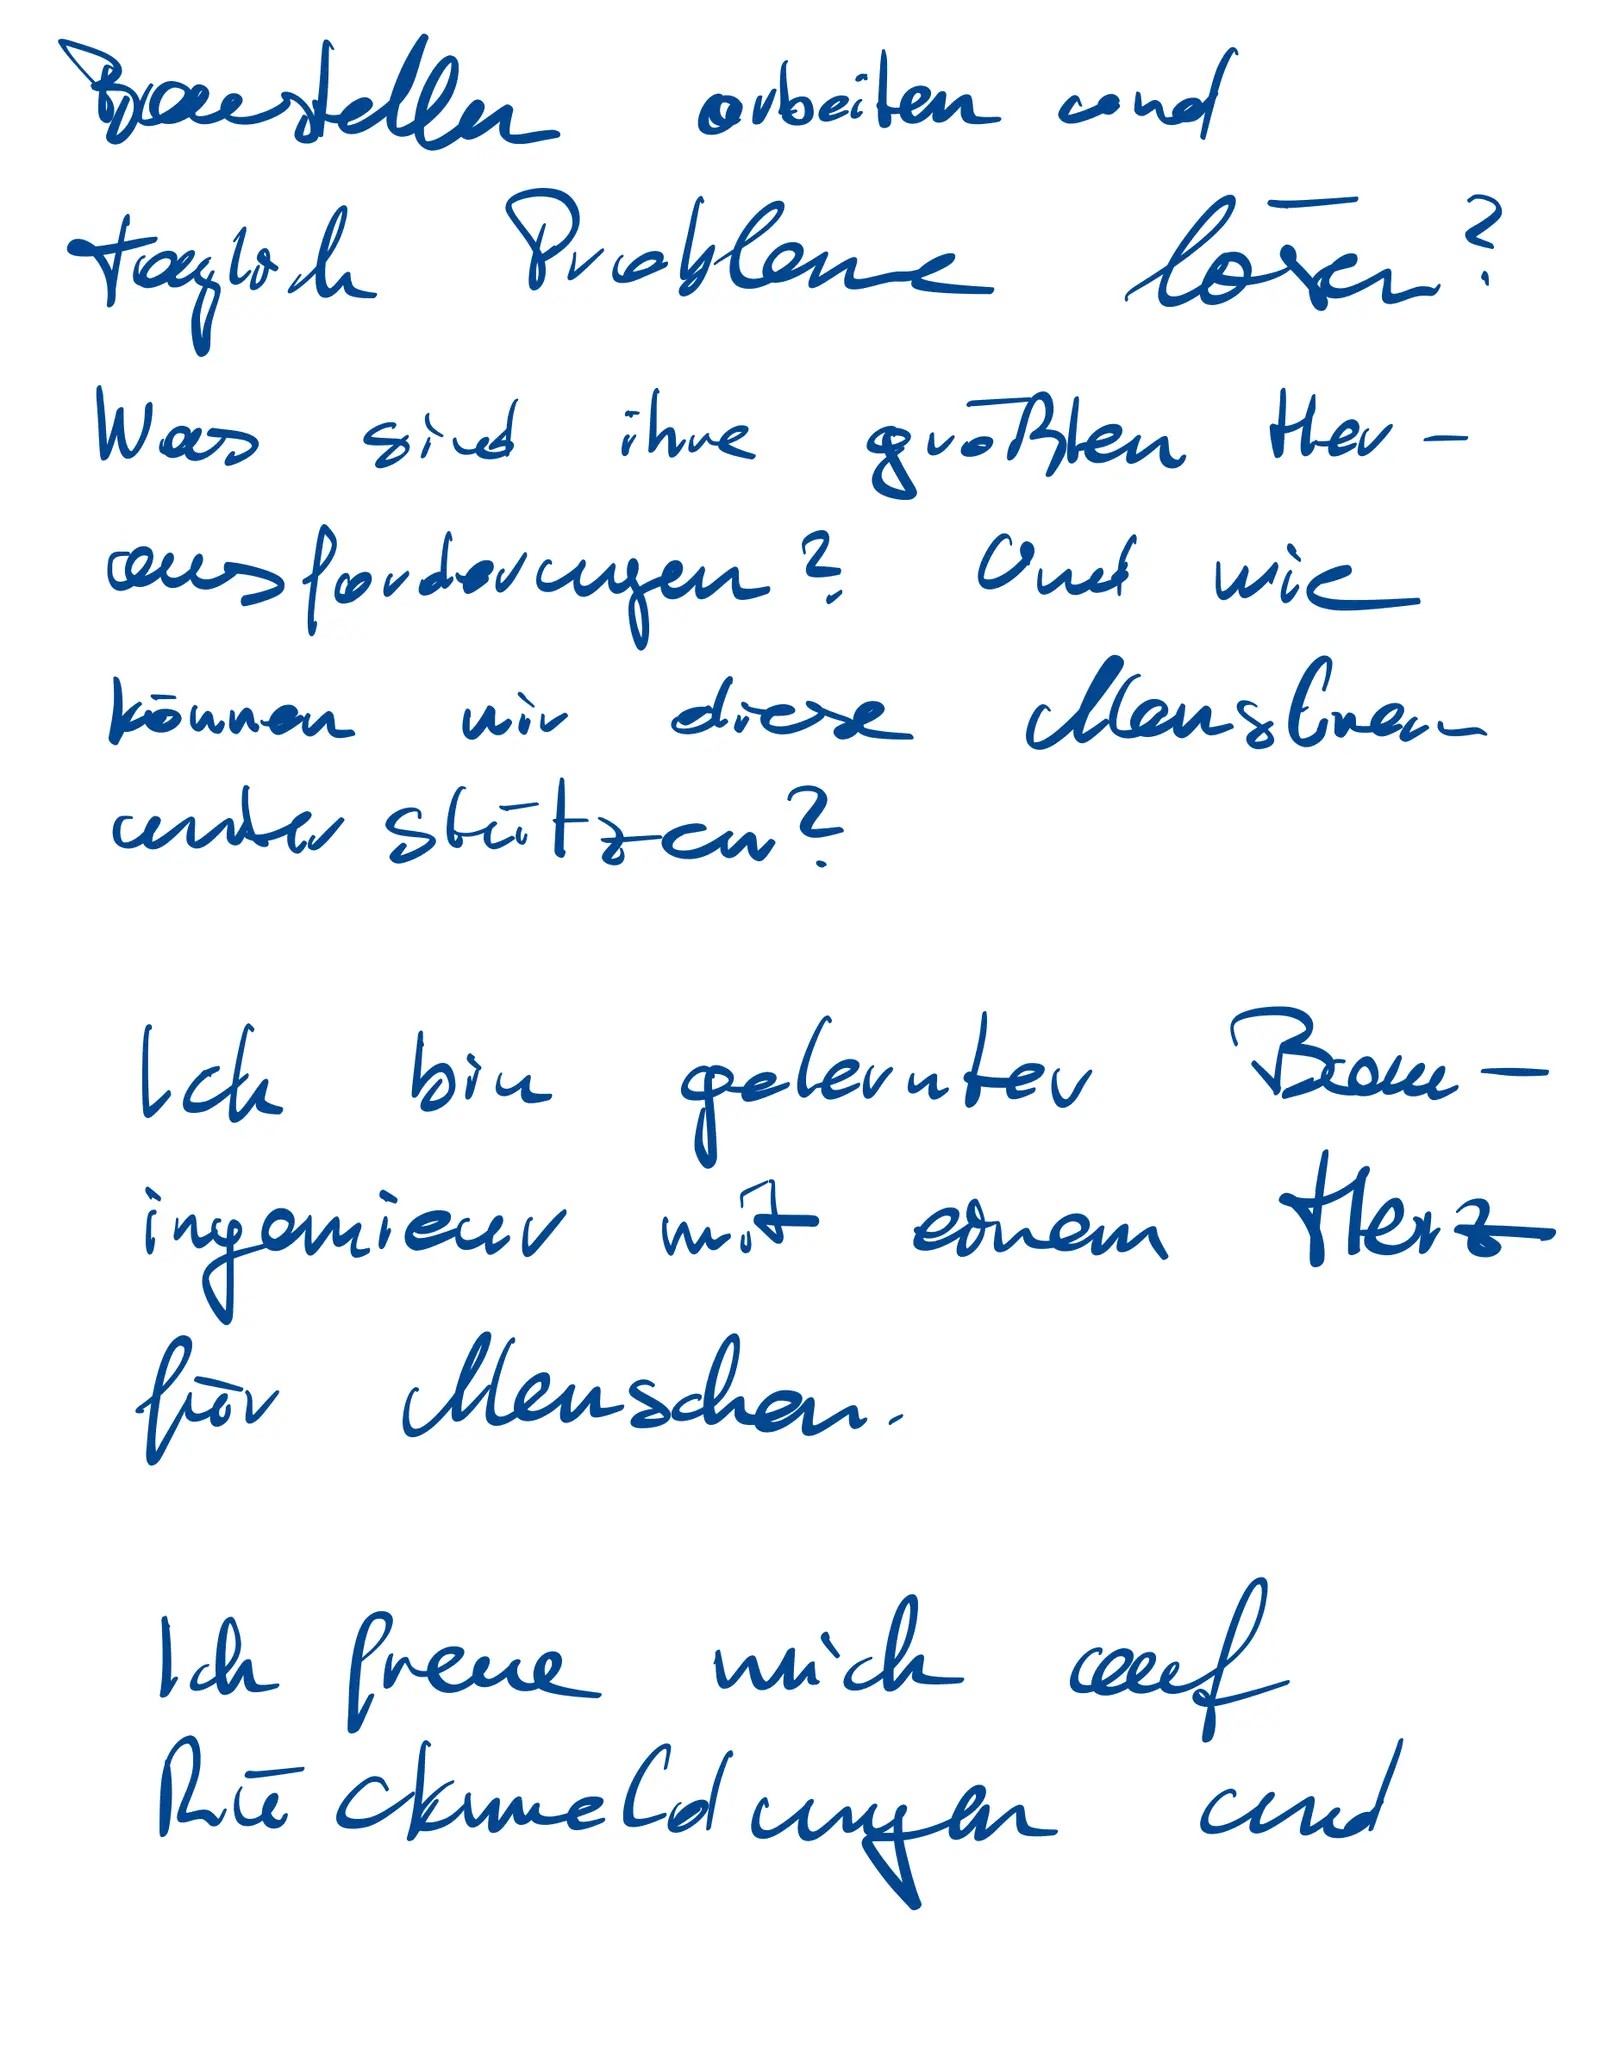 Baustellen arbeiten und
täglich Probleme lösen?
Was sind ihre größten Her-
ausforderungen? Und wie
können wir diese
unterstützen?
Ich bin gelernter Bau-
ingenieur mit einem Herz
für Menschen.
Ich freue mich auf
Rückmeldungen und